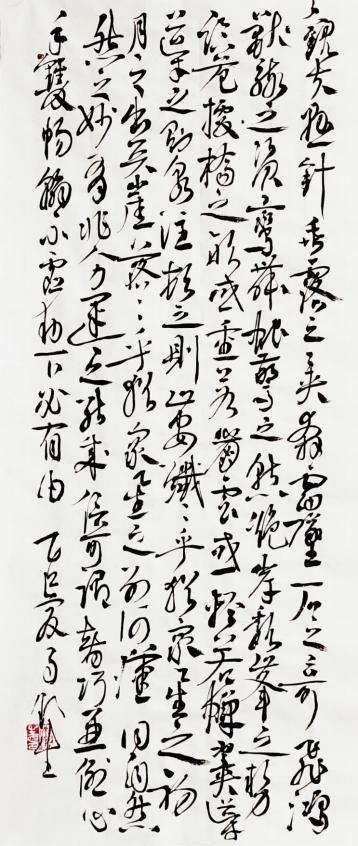 觀夫懸針垂露之異奔雷墜石之奇飛鴻
獸駭之資鸞舞蛇驚之態絕岸頹峰之勢
臨危據槁之形或重若崩雲或輕若蟬翼導
導之則泉注頓之則山安纖纖乎猶眾星之初
月之出天崖落落乎猶眾星之列河漢同自然
然之妙有非人力運之能成信可謂智巧兼優心
手雙暢翰不虛動下必有由 乙巳夏